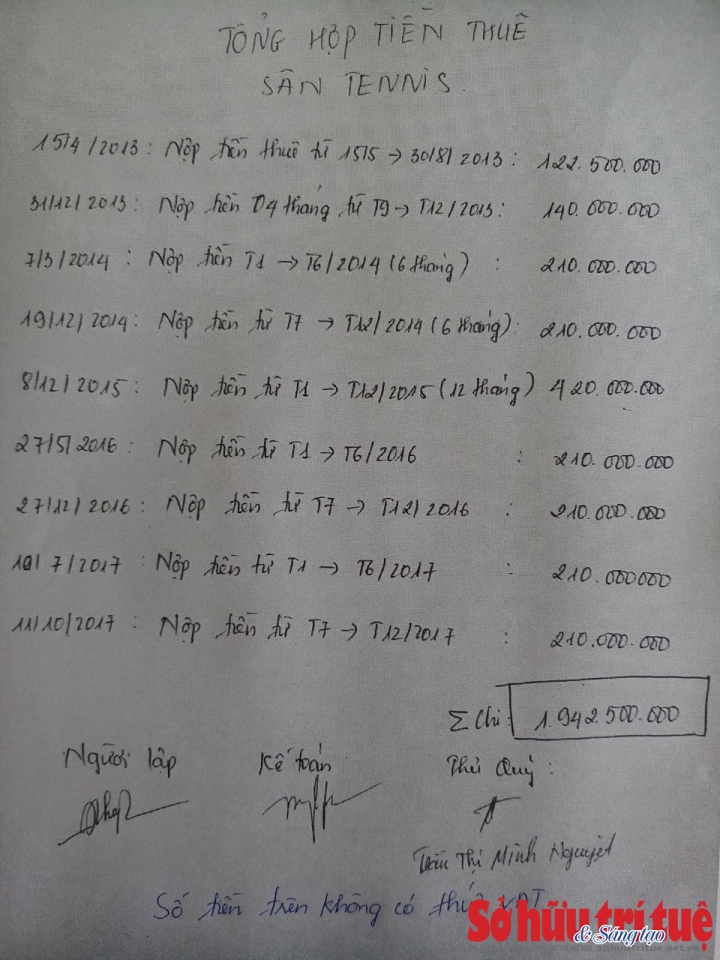 TỔNG HỢP TIỀN THUÊ
SÂN TENNIS.
15/4/2013: Nộp tiền thuê từ 15/5 → 30/8/2013: 122.500.000
31/12/2013: Nộp tiền 04 tháng từ T9 → T12/2013: 140.000.000
7/3/2014: Nộp tiền T1 → T6/2014 (6 tháng) : 210.000.000
19/12/2014: Nộp tiền từ T7 → T12/2014 (6 tháng): 210.000.000
8/12/2015: Nộp tiền từ T1 → T12/2015 (12 tháng) 420.000.000
27/5/2016: Nộp tiền từ T1 → T6/2016 : 210.000.000
27/12/2016: Nộp tiền từ T7 → T12/2016 : 210.000.000
10/7/2017: Nộp tiền từ T1 → T6/2017 : 210.000000
11/10/2017: Nộp tiền từ T7 → T12/2017 : 210.000.000
Σ Chi: 1.942.500.000
Người lập Kế toán Thủ Quỹ:
Trần Thị Minh Nguyệt
Số tiền trên không có thuế VAT
Sở hữu trí tuệ
& Sáng tạo